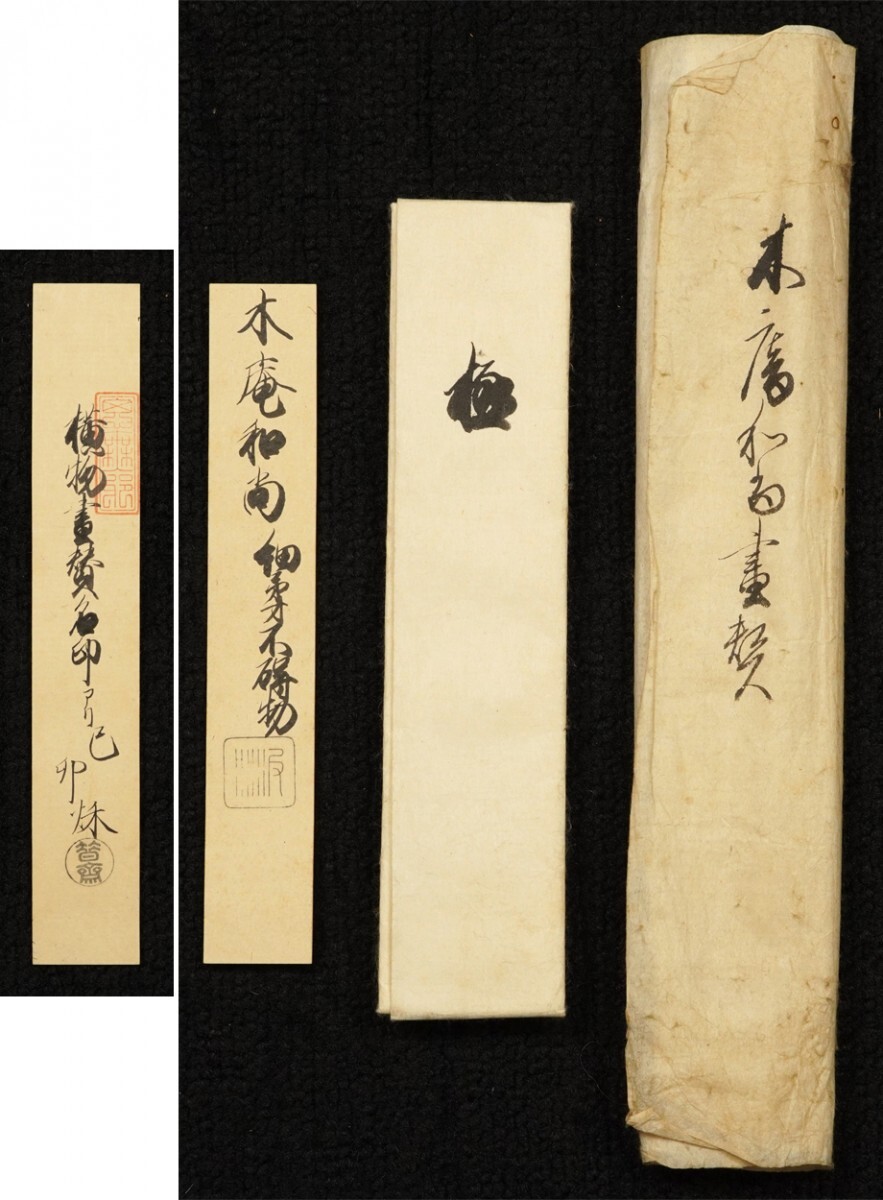 木庵和尚畫賛
極
木庵和尚 細事不碍物
横物畫賛名印アリ 己
卯秌